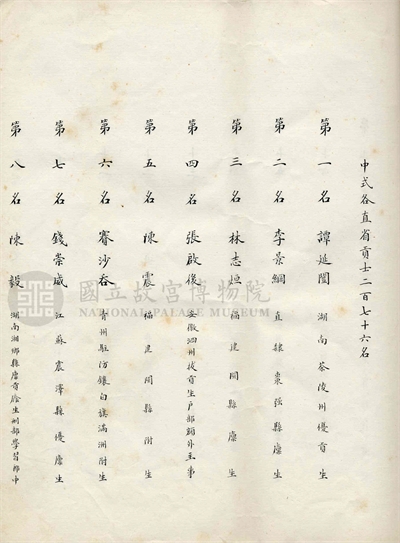 中式各直省貢士二百七十六名
第一名譚延闓 湖南茶陵州優貢生
第二名李景綱 直隸棗强縣廪生
第三名林志烜 福建閩縣廪生
第四名張啟後 安徽泗州拔貢生戶部額外主事
第五名陳震 福建閩縣附生
第六名賽沙吞 青州駐防鑲白旗滿洲附生
第七名錢崇威 江蘇震澤縣優廪生
第八名陳毅 湖南湘鄉縣廪貢生刑部學習郎中
國立故宮博物院
NATIONAL PALACE MUSEUM